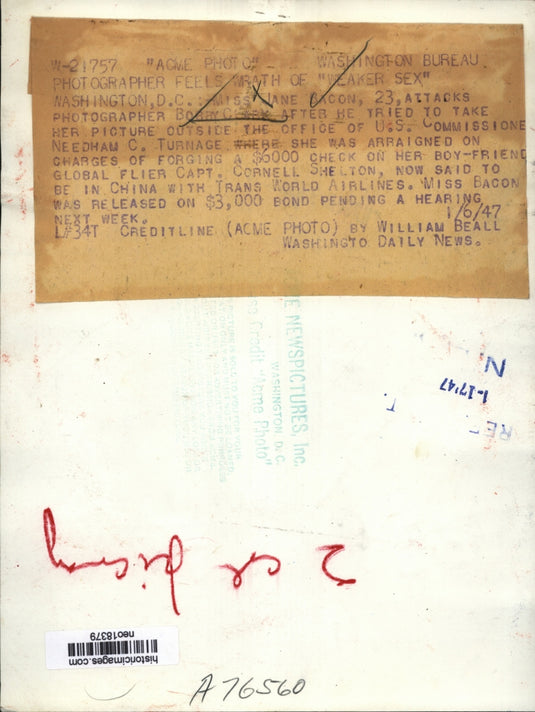 W-21757 "ACME PHOTO" WASHINGTON BUREAU
PHOTOGRAPHER FEELS WRATH OF "WEAKER SEX"
WASHINGTON, D.C.: MISS JANE BACON, 23, ATTACKS
PHOTOGRAPHER AFTER HE TRIED TO TAKE
HER PICTURE OUTSIDE THE OFFICE OF U.S. COMMISSIONE
NEEDHAM C. TURNAGE WHERE SHE WAS ARRAIGNED ON
CHARGES OF FORGING A $5000 CHECK ON HER BOY-FRIEND
GLOBAL FLIER CAPT. CORNELL SHELTON, NOW SAID TO
BE IN CHINA WITH TRANS WORLD AIRLINES. MISS BACON
WAS RELEASED ON $3,000 BOND PENDING A HEARING
NEXT WEEK. 1/6/47
L#34T CREDITLINE (ACME PHOTO) BY WILLIAM BEALL
WASHINGTO DAILY NEWS.
NEWSPICTURES, Inc.
WASHINGTON, D.C.
Credit "Acme Photo"
1-17'47
2 col
historicimages.com
neo18379
A76560